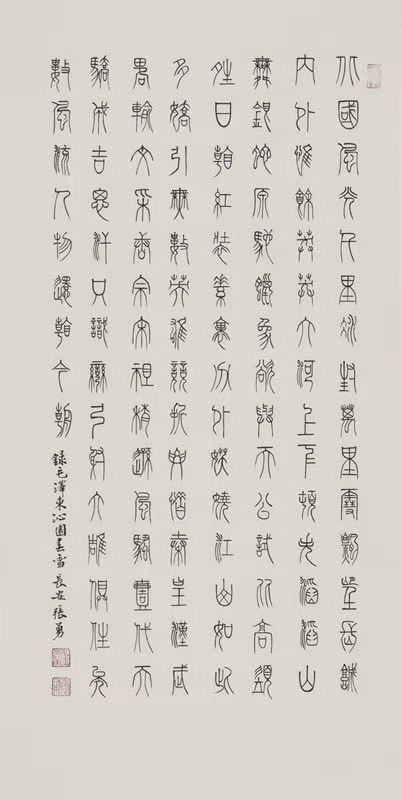 北國風光千里冰封萬里雪飄望長城
內外惟餘莽莽大河上下頓失滔滔山
舞銀蛇原馳蠟象欲與天公試比高須
晴日看紅裝素裹分外妖嬈江山如此
多嬌引無數英雄競折腰惜秦皇漢武
略輸文采唐宗宋祖稍遜風騷壹代天
驕成吉思汗只識彎弓射大雕俱往矣
數風流人物還看今朝
錄毛澤東沁園春雪 長安張勇